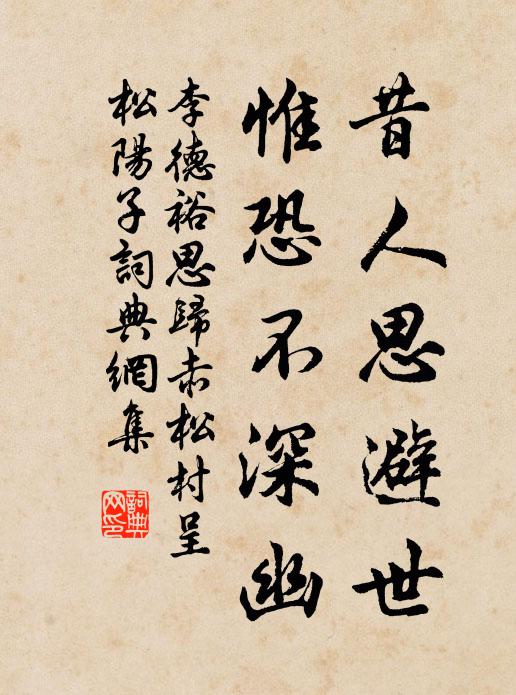 昔人思避世
惟恐不深幽
李德裕思歸赤松村呈
松陽子詞典網集
詞典
网印